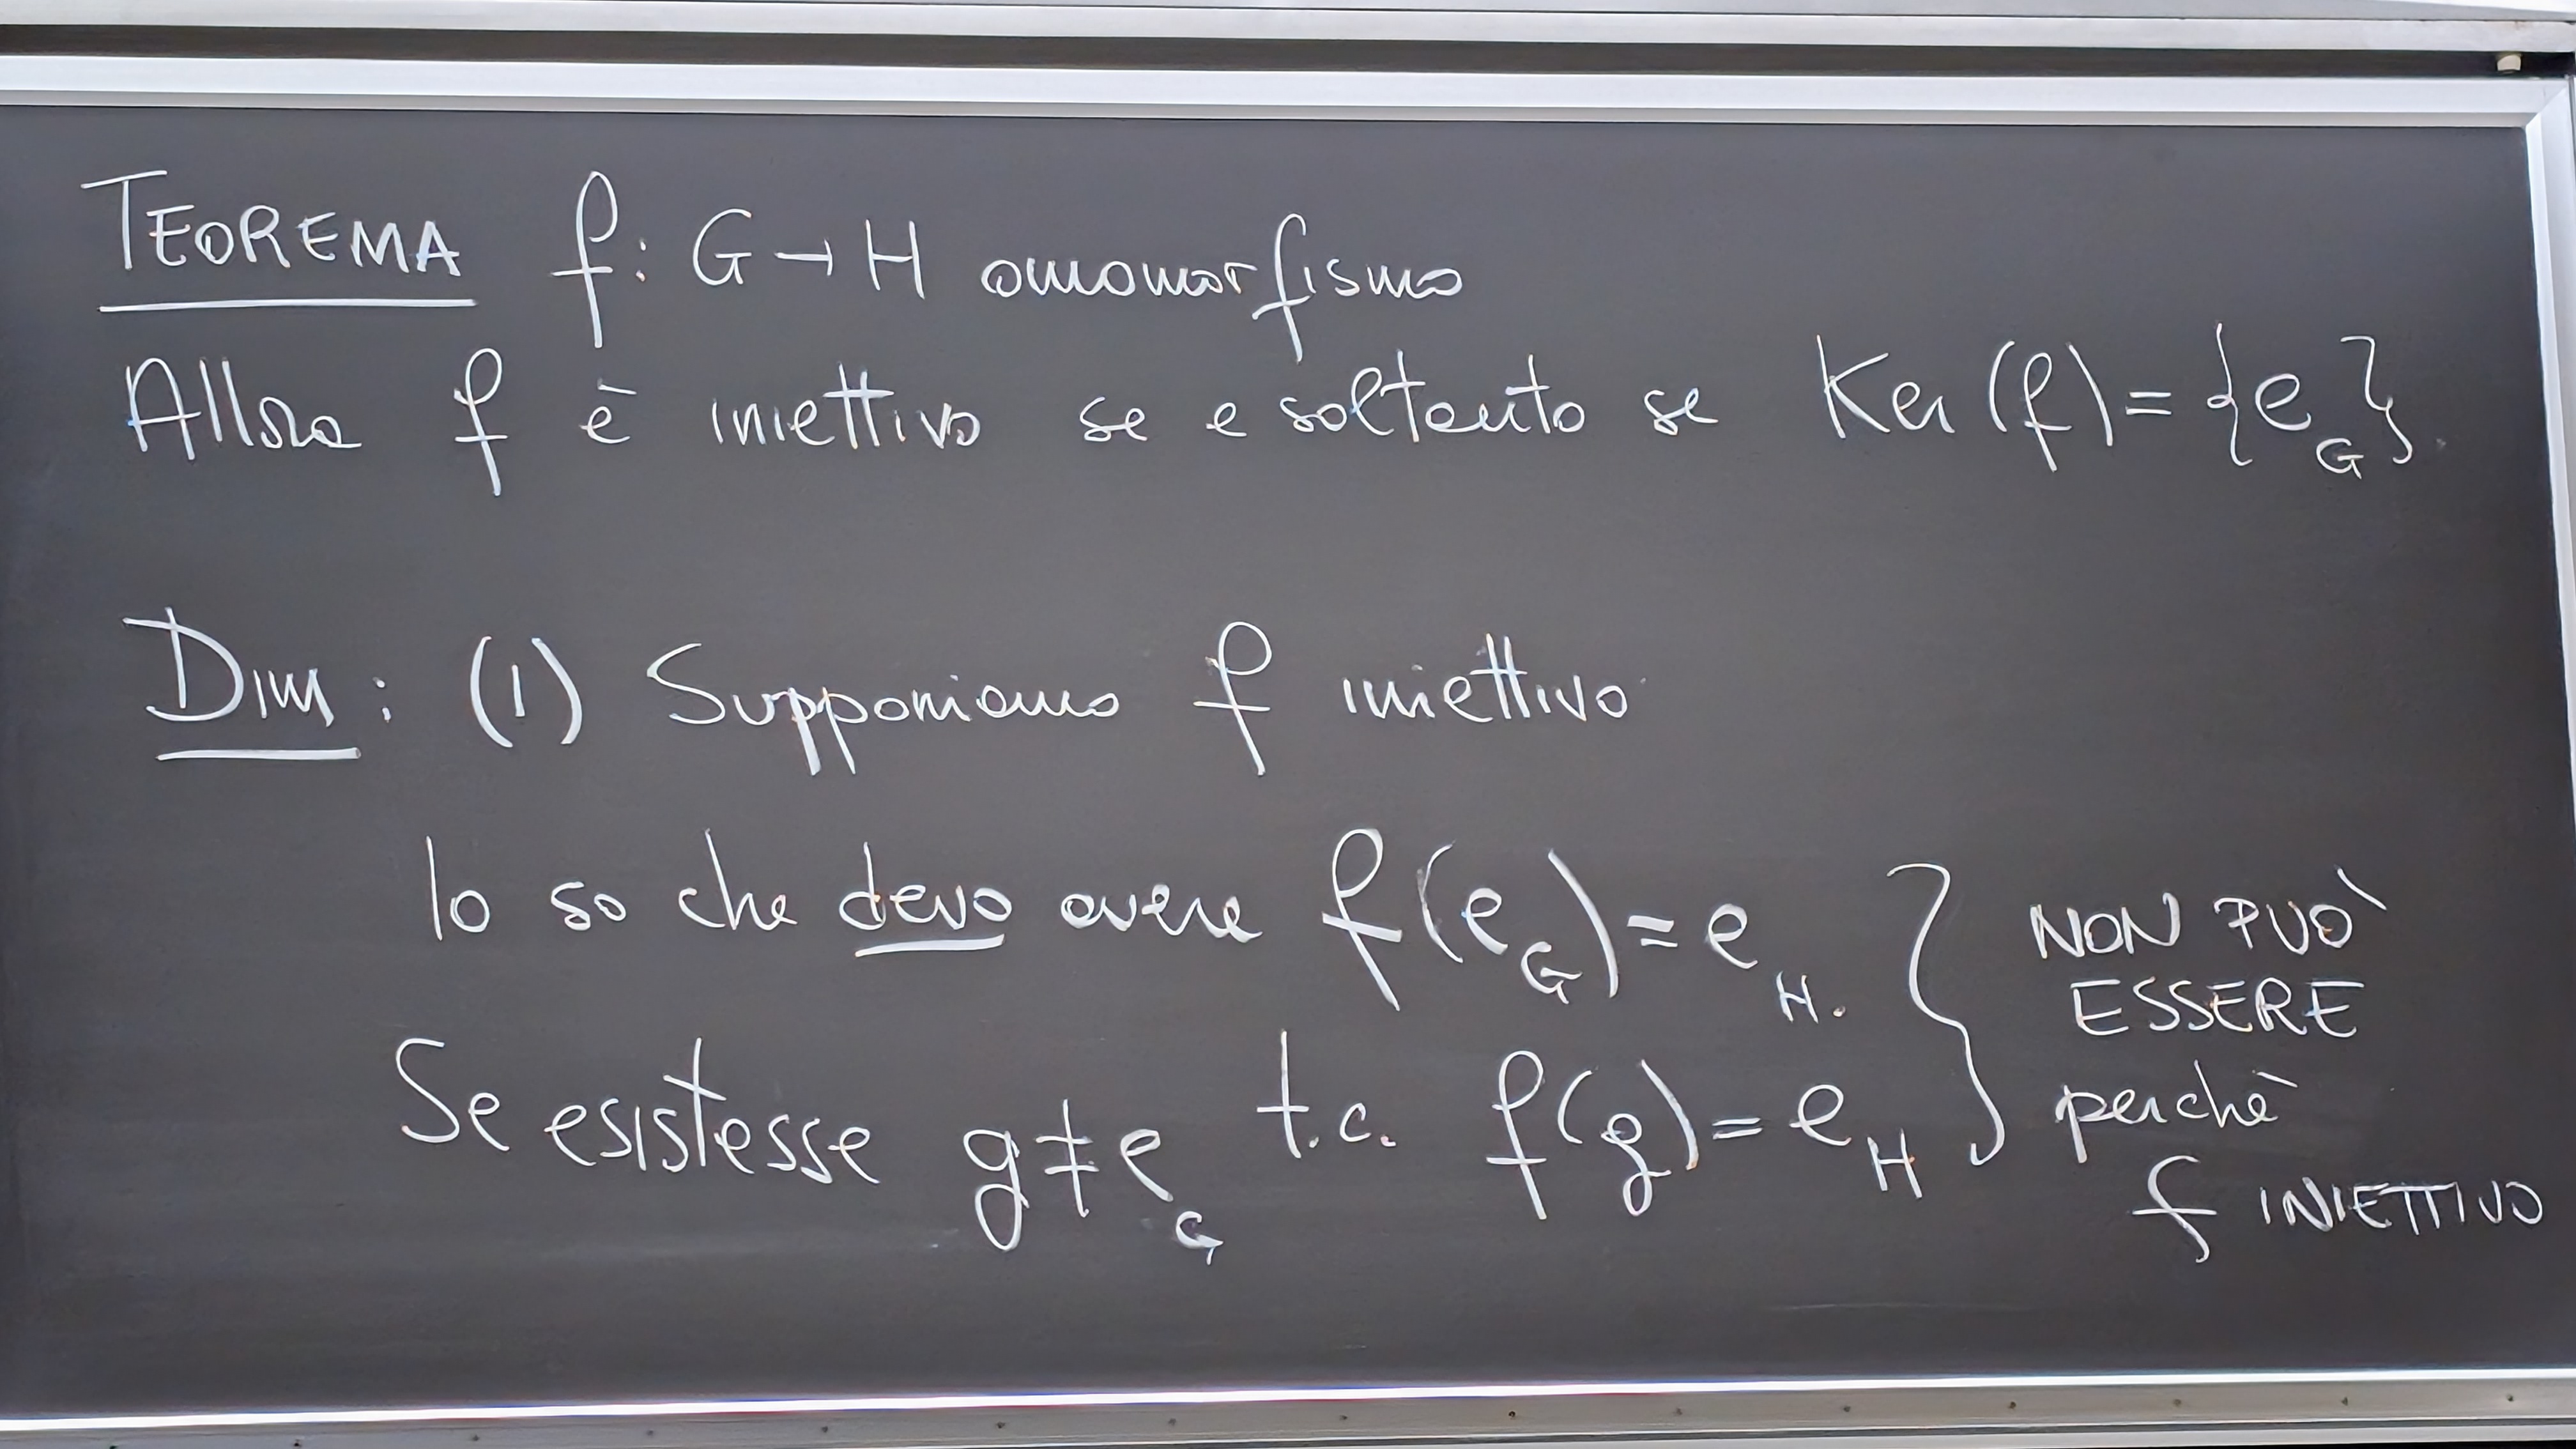 TEOREMA f: G→H omomorfismo
Allora f è iniettivo se e soltanto se Ker(f)={e_G}.
DIM: (1) Supponiamo f iniettivo
Io so che devo avere f(e_G)=e_H.
Se esistesse g≠e_G t.c. f(g)=e_H
NON PUÒ
ESSERE
perchè
f INIETTIVO